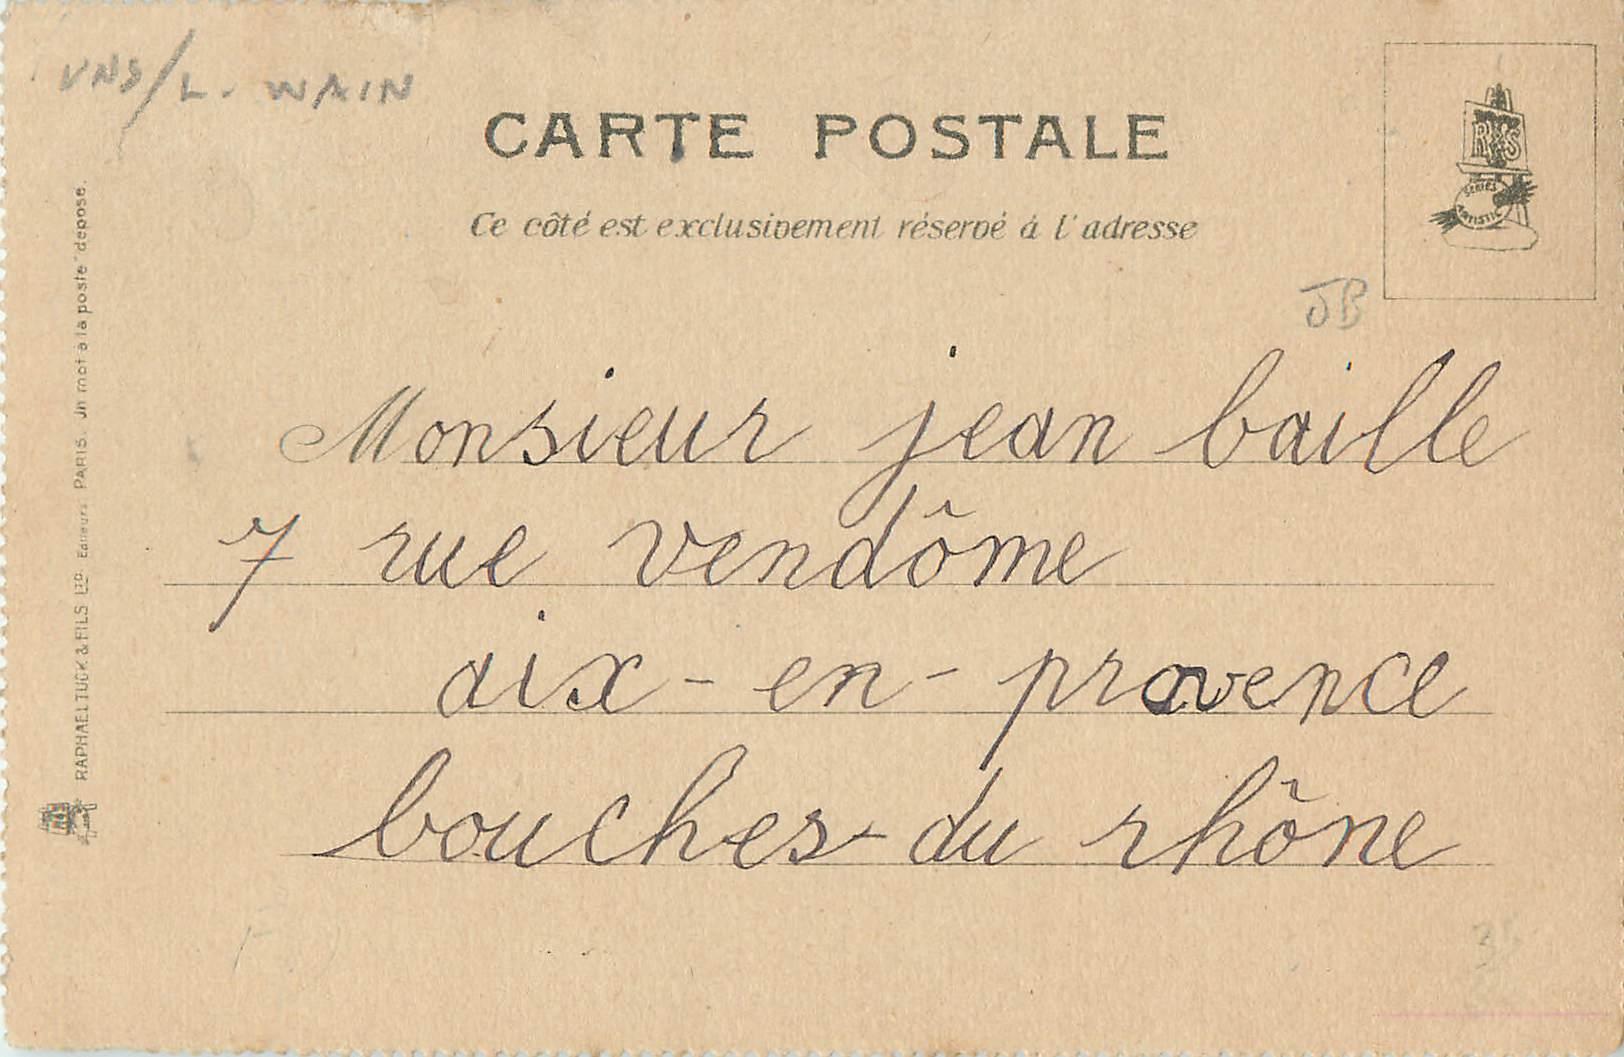 VNS/L. WAIN
CARTE POSTALE
Ce côté est exclusivement réservé à l'adresse
R T S
SERIES
ARTISTIC
JB
Monsieur jean baille
7 rue vendôme
aix-en-provence
bouches-du rhône
RAPHAEL TUCK & FILS LTD Editeurs PARIS. Un mot à la poste "déposé.